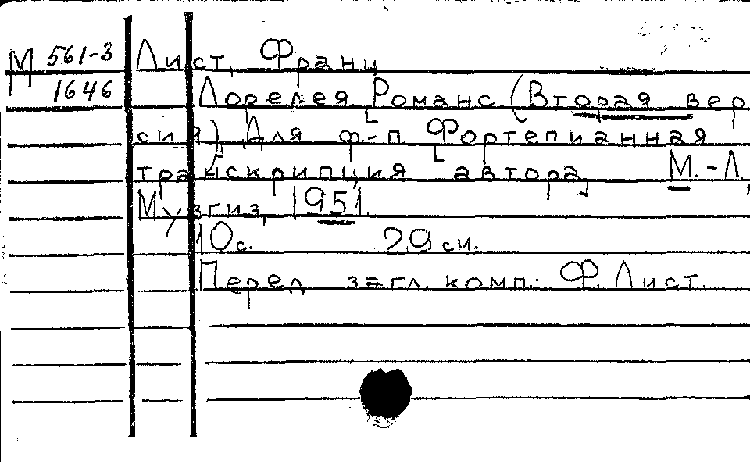 М 561-3 Лист, Франц
1646 Лорелея [Романс (Вторая вер
сия)] Для ф-п [Фортепианная
транскрипция автора] М.-Л.,
Музгиз, 1951.
10 с. 29 см.
Перед загл. комп.: Ф. Лист.